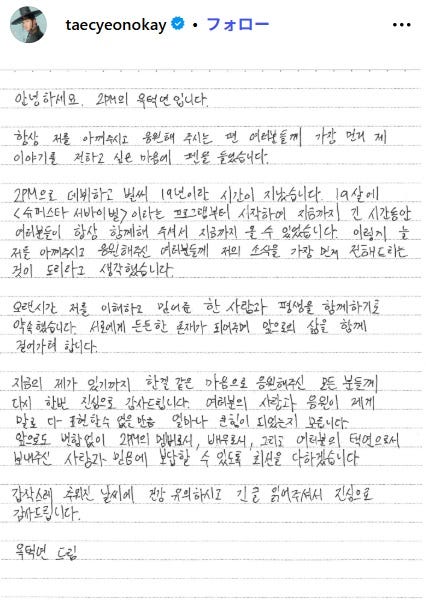 taecyeonokay • フォロー
안녕하세요. 2PM의 옥택연입니다.
항상 저를 아껴주시고 응원해 주시는 팬 여러분들께 가장 먼저 제
이야기를 전하고 싶은 마음에 펜을 들었습니다.
2PM으로 데뷔하고 벌써 19년이란 시간이 지났습니다. 19살에
<슈퍼스타 서바이벌>이라는 프로그램부터 시작하여 지금까지 긴 시간동안
여러분들이 항상 함께해 주셔서 지금까지 올 수 있었습니다. 이렇게 늘
저를 아껴주시고 응원해주신 여러분들께 저의 소식을 가장 먼저 전해드리는
것이 도리라고 생각했습니다.
오랜시간 저를 이해하고 믿어준 한 사람과 평생을 함께하기로
약속했습니다. 서로에게 든든한 존재가 되어주며 앞으로의 삶을 함께
걸어가려 합니다.
지금의 제가 있기까지 한결 같은 마음으로 응원해주신 모든 분들께
다시 한번 진심으로 감사드립니다. 여러분의 사랑과 응원이 제게
말로 다 표현할수 없을만큼 얼마나 큰힘이 되었는지 모릅니다.
앞으로도 변함없이 2PM의 멤버로서, 배우로서, 그리고 여러분의 택연으로서
보내주신 사랑과 믿음에 보답할 수 있도록 최선을 다하겠습니다
갑작스레 추워진 날씨에 건강 유의하시고 긴글 읽어주셔서 진심으로
감사드립니다.
옥택연 드림